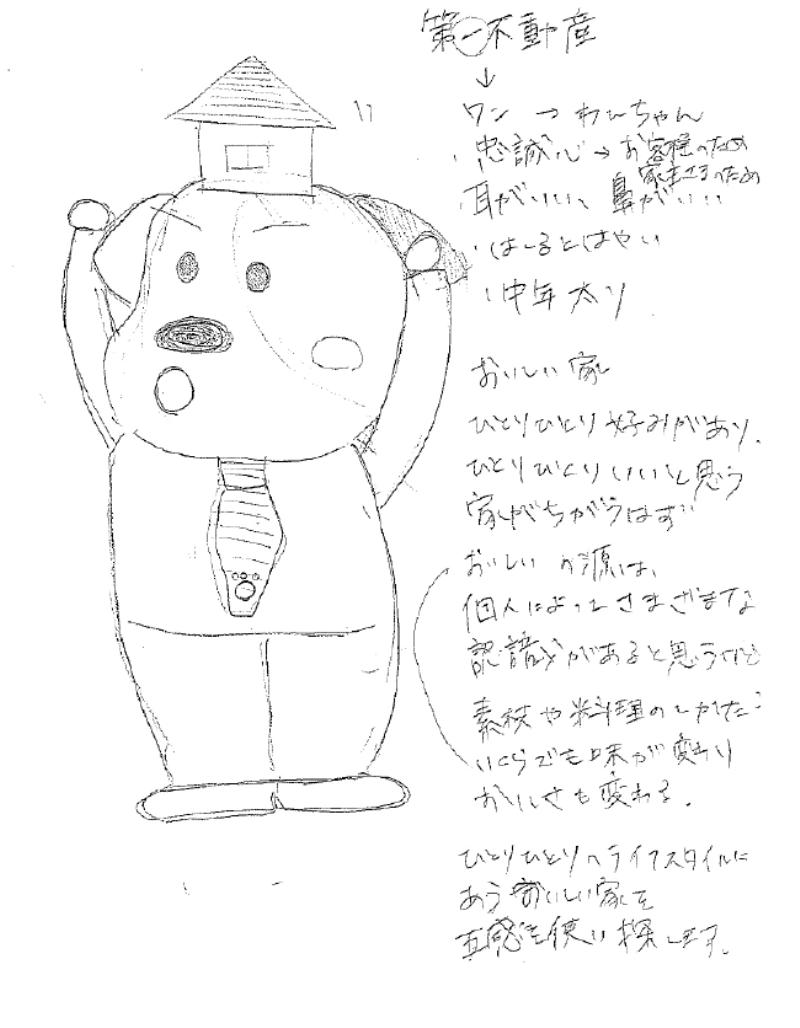 第一不動産
↓
ワン → わんちゃん
・忠誠心 → お客様のため
家主さまのため
・耳がいい、鼻がいい
・はしるとはやい
・中年太り
おいしい家
ひとりひとり好みがあり、
ひとりひとりいいと思う
家がちがうはず
おいしいの源は、
個人によってさまざまな
認識があると思うけど
素材や料理のしかた
いくらでも味が変わり
おいしさも変わる。
ひとりひとりのライフスタイルに
あうおいしい家を
五感を使い探します。